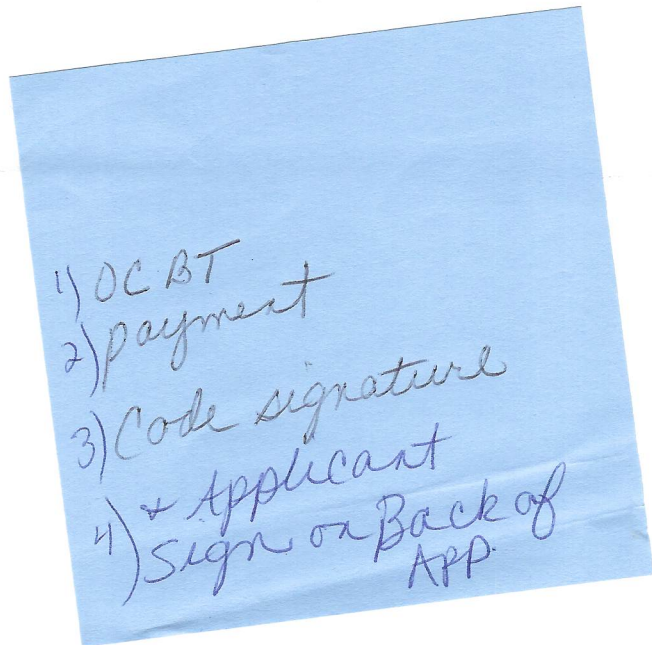 1) OCBT
2) payment
3) Code signature
4) + Applicant
Sign on Back of
APP.